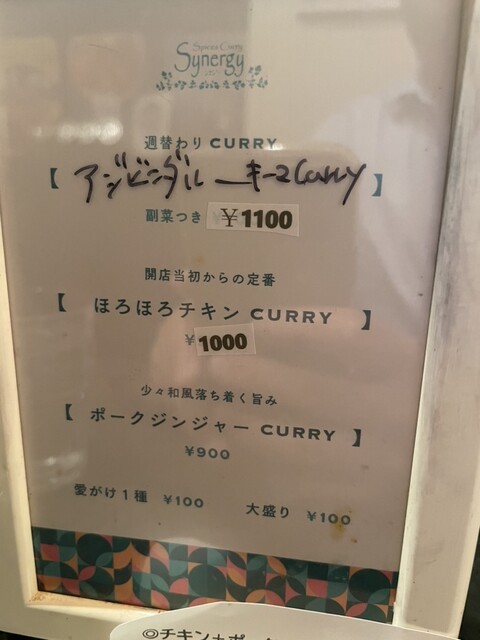 Spices Curry
Synergy
週替わり CURRY
【アジビンダルーキーマCurry】
副菜つき ¥1100
開店当初からの定番
【 ほろほろチキン CURRY 】
¥1000
少々和風落ち着く旨み
【 ポークジンジャー CURRY 】
¥900
愛がけ1種 ¥100 大盛り ¥100